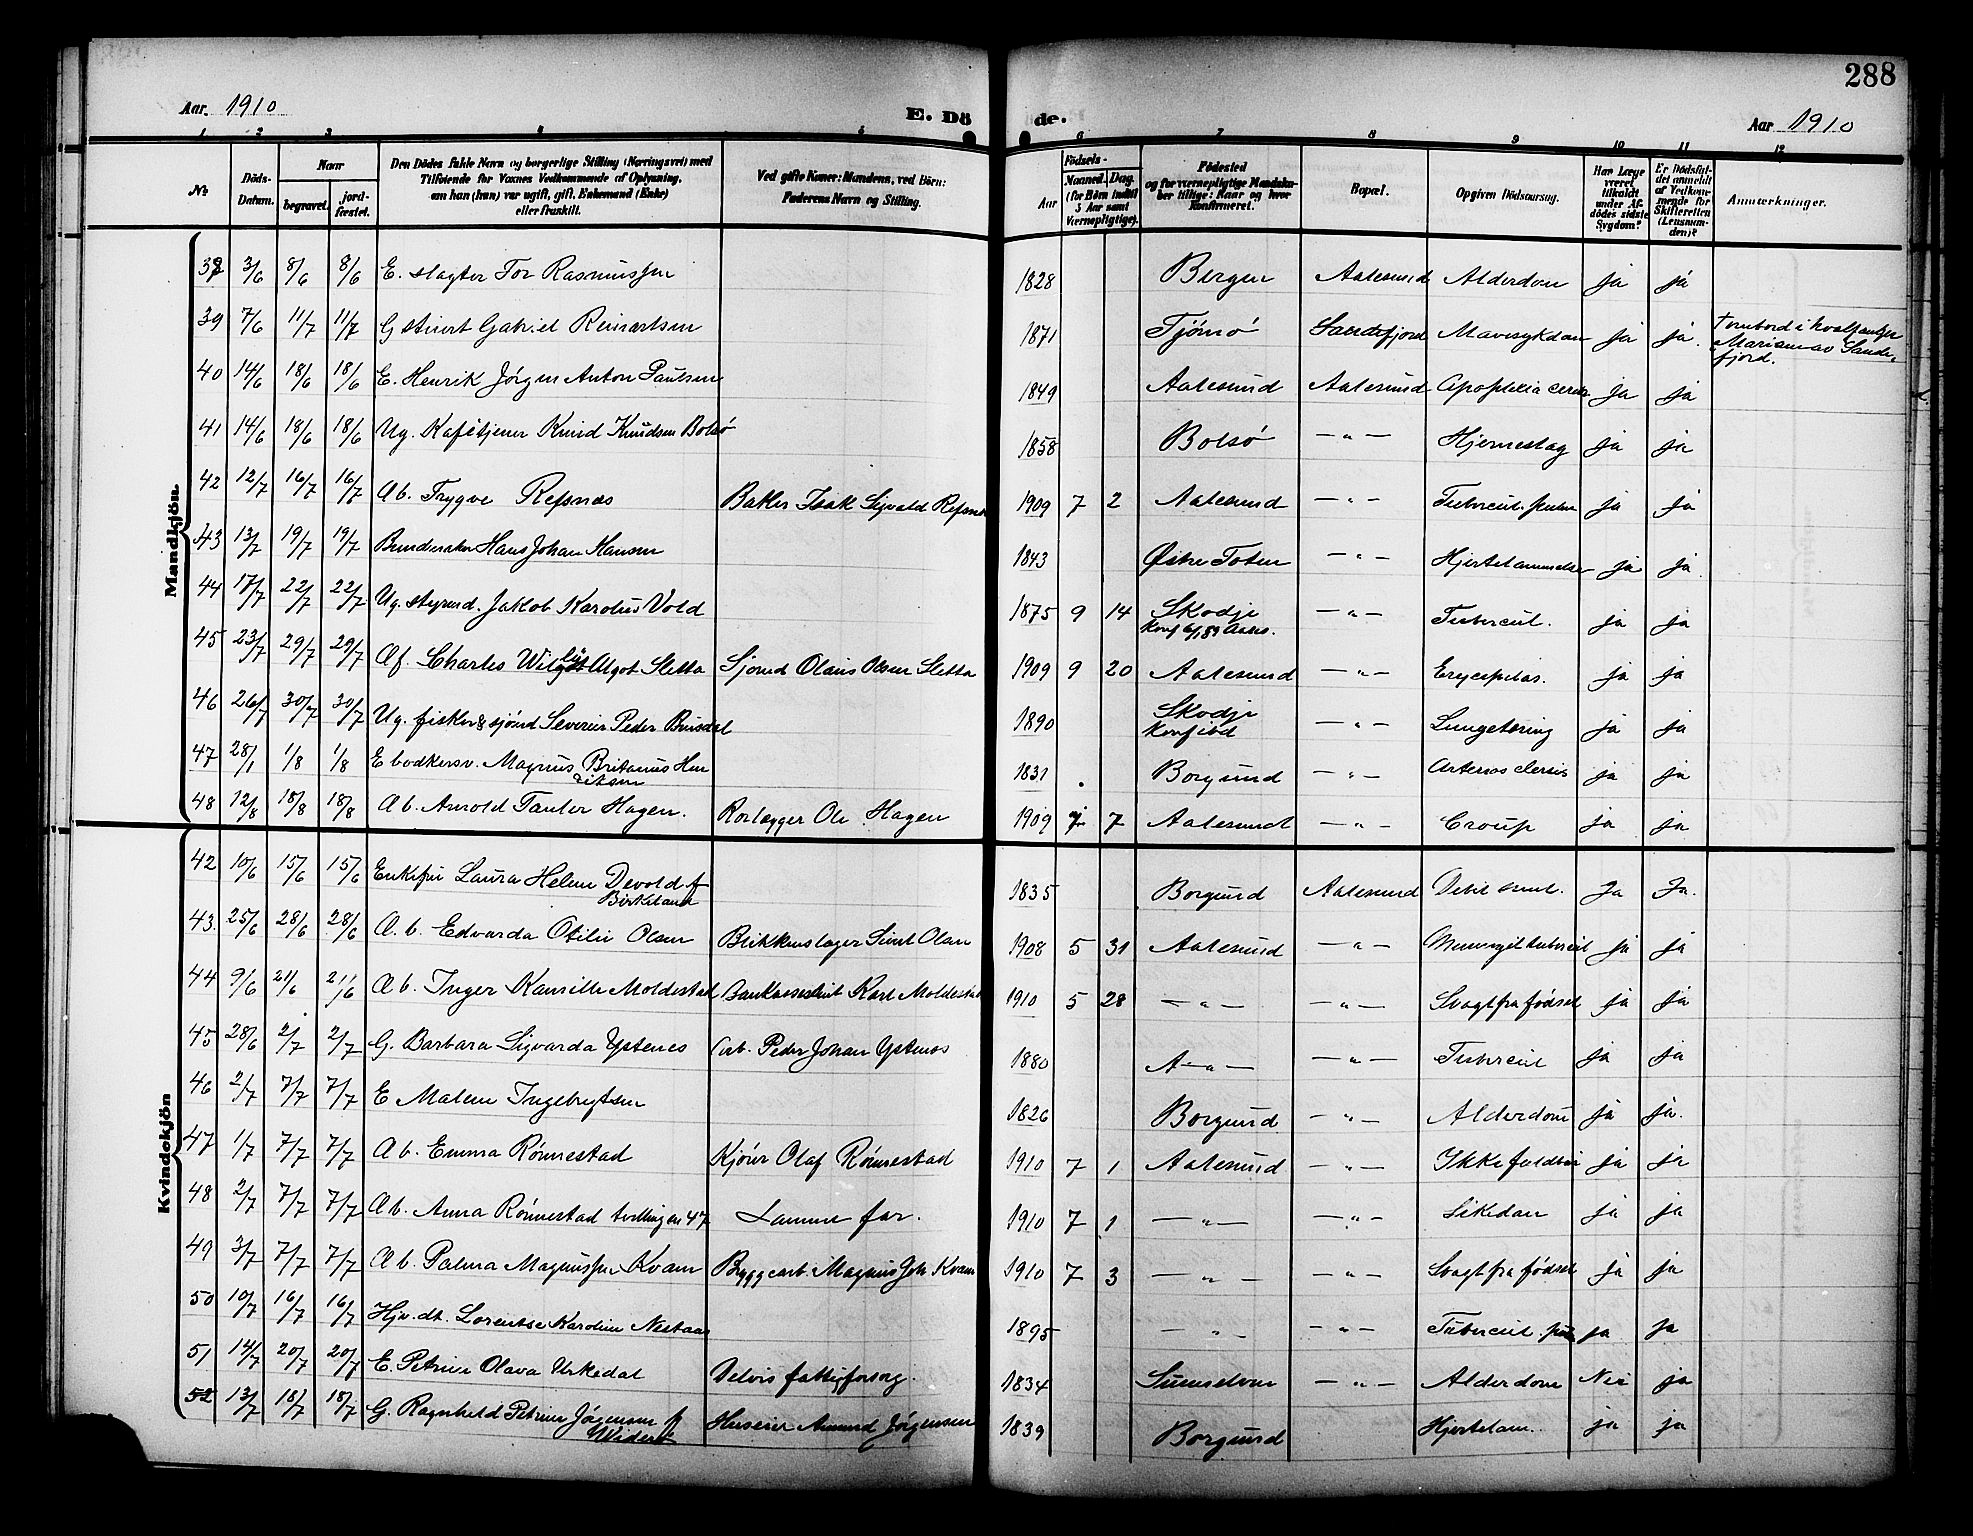 288
Aar. 1910
E. Dö
de.
Aar 1910
1 2 3 4 5 6 7 8 9 10 11 12
No
Döds-Datum.
Naar
begravet.
jord-fæstet.
Den Dödes fulde Navn og borgerlige Stilling (Næringsvei) med
Tilföiende for Voxnes Vedkommende af Oplysning,
om han (hun) var ugift, gift, Enkemand (Enke)
eller fraskilt.
Ved gifte Koner: Mandens, ved Börn:
Faderens Navn og Stilling.
Födsels-
Aar
Maaned. Dag.
(for Börn indtil
5 Aar samt
Værnepligtige).
Födested
og for værnepligtige Mandska-
ber tillige: Naar og hvor
Konfirmeret.
Bopæl.
Opgiven Dödsaarsag.
Har Læge
været
tilkaldt
under Af-
dödes sidste
Sygdom?
Er Dödsfal-
det anmeldt
af Vedkom-
mende for
Skifteretten
(Lensman-
den)?
Anmærkninger.
Mandkjön.
38 3/6 8/6 8/6 E. slagter Tor Rasmussen 1828 Bergen Aalesund Alderdom ja ja
39 7/6 11/7 11/7 G stuert Gabriel Reinertsen 1871 Tjömö Sandefjord Mavesykdom ja ja. ombord i hvalfanger
Mariam av Sande
fjord.
40 14/6 18/6 18/6 E. Henrik Jörgen Anton Paulsen 1849 Aalesund Aalesund Apoplexia cereb ja ja
41 14/6 18/6 18/6 Ug. Kafétjener Knud Knudsen Bolsö 1858 Bolsö — " — Hjerneslag ja ja
42 12/7 16/7 16/7 Æb. Trygve Refsnæs Baker Isak Sigvald Refsnæs 1909 7 2 Aalesund — " — Tubercul. pulm ja ja
43 13/7 19/7 19/7 Hans Johan Hansen 1843 Østre Toten — " — Hjertelammelse ja ja.
44 17/7 22/7 22/7 Ug. styrmd. Jakob Karolius Vold 1875 9 14 Skodje — " — Tubercul. ja ja
45 23/7 29/7 29/7 Æf. Charles Algot Sletta Sjömd Olaus Olsen Sletta 1909 9 20 Aalesund — " — Erycipelas. ja ja
46 26/7 30/7 30/7 Ug. fisker & sjömd Severin Peder Brusdal 1890 Skodje — " — Lungetæring ja ja
47 28/1 1/8 1/8 E bödkersv. Magnus Britanus Hen
riksen 1831 Borgund — " — ja ja
48 12/8 18/8 18/8 Æb. Arnold Hagen. Rörlægger Ole Hagen 1909 7 7 Aalesund — " — Croup ja ja
Kvindekjön
42 10/6 15/6 15/6 Enkefru Laura Helene Devold f
Birkeland 1835 Borgund Aalesund Debil senil. Ja Ja.
43. 25/6 28/6 28/6 Æ. b. Edvarda Otilie Olsen Blikkenslager Olsen 1908 5 31 Aalesund — " — ja ja
44 9/6 21/6 21/6 Æb. Inger Moldestad Karl Moldestad 1910 5 28 — " — — " — Svagt fra födsel ja ja
45 28/6 2/7 2/7 G. Barbara Sigvarda Ystenes Arb. Peder Johan Ystenes 1880 A — " — — " — Tubercul ja ja
46 2/7 7/7 7/7 E Malene Ingebrigtsen 1826 Borgund — " — Alderdom ja ja.
47 1/7 7/7 7/7 Æb. Emma Rönnestad Kjörer Olaf Rönnestad 1910 7 1 Aalesund — " — Ikke ja ja
48 2/7 7/7 7/7 Æb. Anna Rönnestad tvilling av 47 Samme far. 1910 7 1 — " — — " — Likedan ja ja
49 3/7 7/7 7/7 Æb. Palma Magnussen Kvam Byggearb. Magnus Joh. Kvam 1910 7 3 — " — — " — Svagt fra födsel ja ja
50 10/7 16/7 16/7 Hjv. dt. Lorentse Karoline Nestaas 1895 — " — — " — Tubercul pul ja ja
51 14/7 20/7 20/7 E. Petrine Olava Urkedal Delvis fattigforsorg. 1834 Sunnelven — " — Alderdom Nei ja
52 13/7 18/7 18/7 G. Ragnhild Petrine Jörgensen f Huseier Amund Jörgensen 1839 Borgund Hjertelam. ja ja